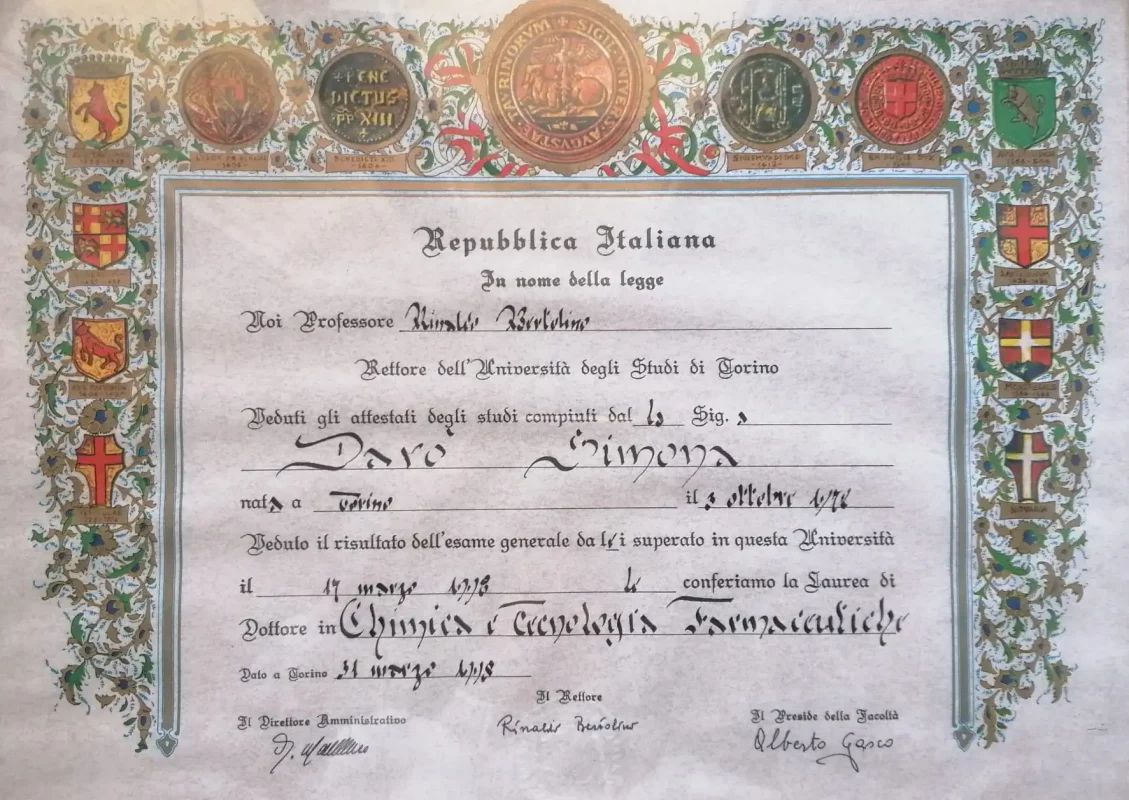 AVGVSTAE · TAVRINORVM + SIGIL
+ BENE
DICTUS
PP XIII
Repubblica Italiana
In nome della legge
Noi Professore Rinaldo Bertolino
Rettore dell'Università degli Studi di Torino
Veduti gli attestati degli studi compiuti dal la Sig. a
Darò Simona
nata a Torino il 3 ottobre
Veduto il risultato dell'esame generale da lei superato in questa Università
il 17 marzo 1998 le conferiamo la Laurea di
Dottore in Chimica e Tecnologia Farmaceutiche
Dato a Torino 31 marzo 1998
Il Rettore
Il Direttore Amministrativo
Rinaldo Bertolino
Il Preside della Facoltà
Alberto Gasco